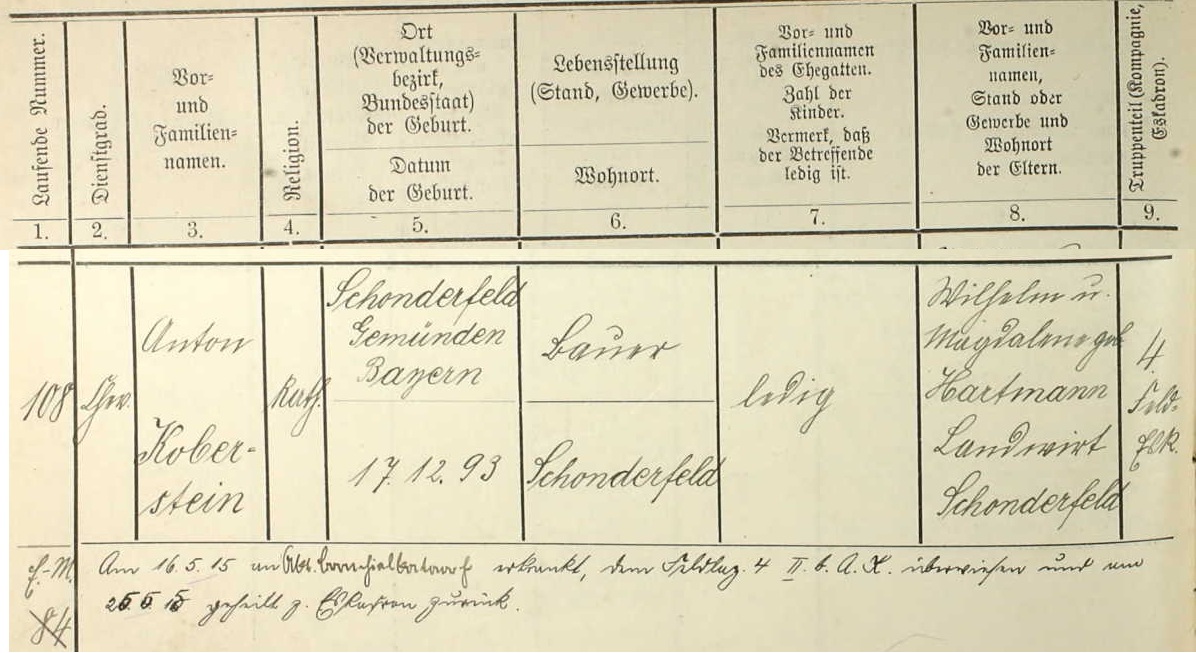 Laufende Nummer.
Dienstgrad.
Vor-
und
Familien-
namen.
Religion.
Ort
(Verwaltungs-
bezirk,
Bundesstaat)
der Geburt.
Datum
der Geburt.
Lebensstellung
(Stand, Gewerbe).
Wohnort.
Vor- und
Familiennamen
des Ehegatten.
Zahl der
Kinder.
Vermerk, daß
der Betreffende
ledig ist.
Vor- und
Familien-
namen,
Stand oder
Gewerbe und
Wohnort
der Eltern.
Truppenteil (Kompagnie,
Eskadron).
1. 2. 3. 4. 5. 6. 7. 8. 9.
108
Chev.
Anton
Kober-
stein
Kath.
Schonderfeld
Gemünden
Bayern
17.12.93
Bauer
Schonderfeld
ledig
Wilhelm u.
Magdalena geb
Hartmann
Landwirt
Schonderfeld
4.
Feld-
Esk.
E.-M.
84
Am 16.5.15 an Bronchialkatarrh erkrankt, dem Feldlaz. 4 II. b. A.K. überwiesen und am
geheilt z. Eskadron zurück.